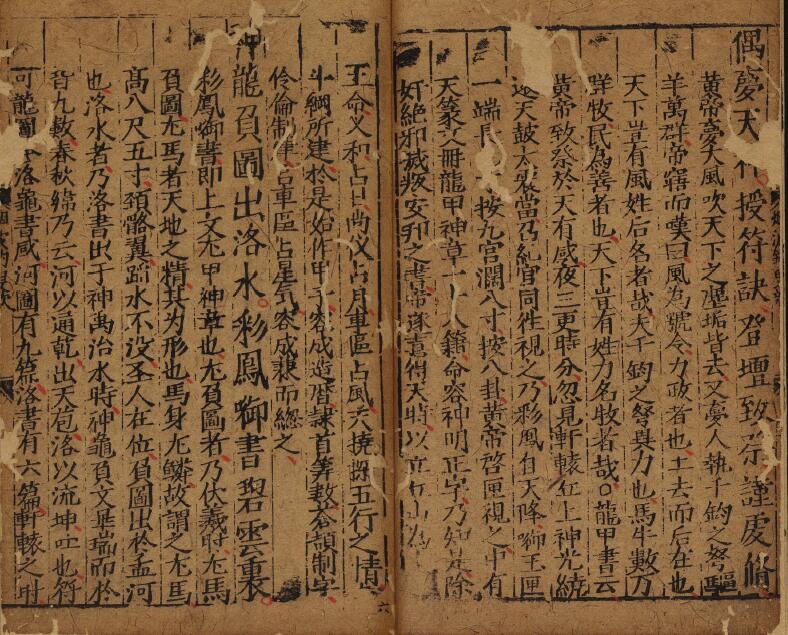 偶夢天神授符訣登壇致祭謹虔修
黃帝夢大風吹天下之塵垢皆去又夢人執千鈞之弩驅
羊萬群帝寤而嘆曰風為號令力政者也土去而后在也
天下豈有風姓后名者哉夫千鈞之弩異力也馬牛數万
群牧民為善者也天下豈有姓力名牧者哉○龍甲書云
黃帝致祭於天有感夜三更時分忽見軒轅丘上神光繞
天鼓太震當乃官同徃視之乃彩鳳自天降啣玉匣
一端長按九宮濶八寸按八卦黃帝啓匣視之中有
天篆文冊龍甲神章一十八篇命容神明正字乃知是除
奸絕邪滅叛安邦之書帝遂齋備天時以立為
王命义和占日尚仪占月車區占風六撓探五行之情
斗綱所建於是始作甲子容成造暦隷首筭數蒼頡制字
伶倫制律占車區占星气容成兼而緫之
神龍負圖出洛水彩鳳啣書碧雲裏
彩鳳啣書即上文龙甲神章也龙負圖者乃伏羲时龙馬
負圖龙馬者天地之精其为形也馬身龙鱗故謂之龙馬
髙八尺五寸頚骼翼踏水不没圣人在位負圖出於孟河
也洛水者乃洛書出于神禹治水時神龜負文畢瑞而於
背九數春秋緯乃云河以通乾出天苞洛以流坤吐也符
可龍圖洛龜書咸河圖有九篇洛書有六篇軒轅之时
六